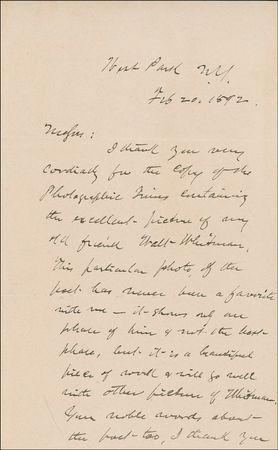 West Park N.Y.
Feb 20, 1892.
Messrs:
I thank you very
cordially for the copy of the
Photographic Times containing
the excellent picture of my
old friend Walt Whitman.
This particular photo, of the
poet has never been a favorite
with me – it shows only one
phase of him & not the best
phase, but it is a beautiful
piece of work & will go well
with other pictures of Whitman.
Your noble words about
the poet too, I thank you